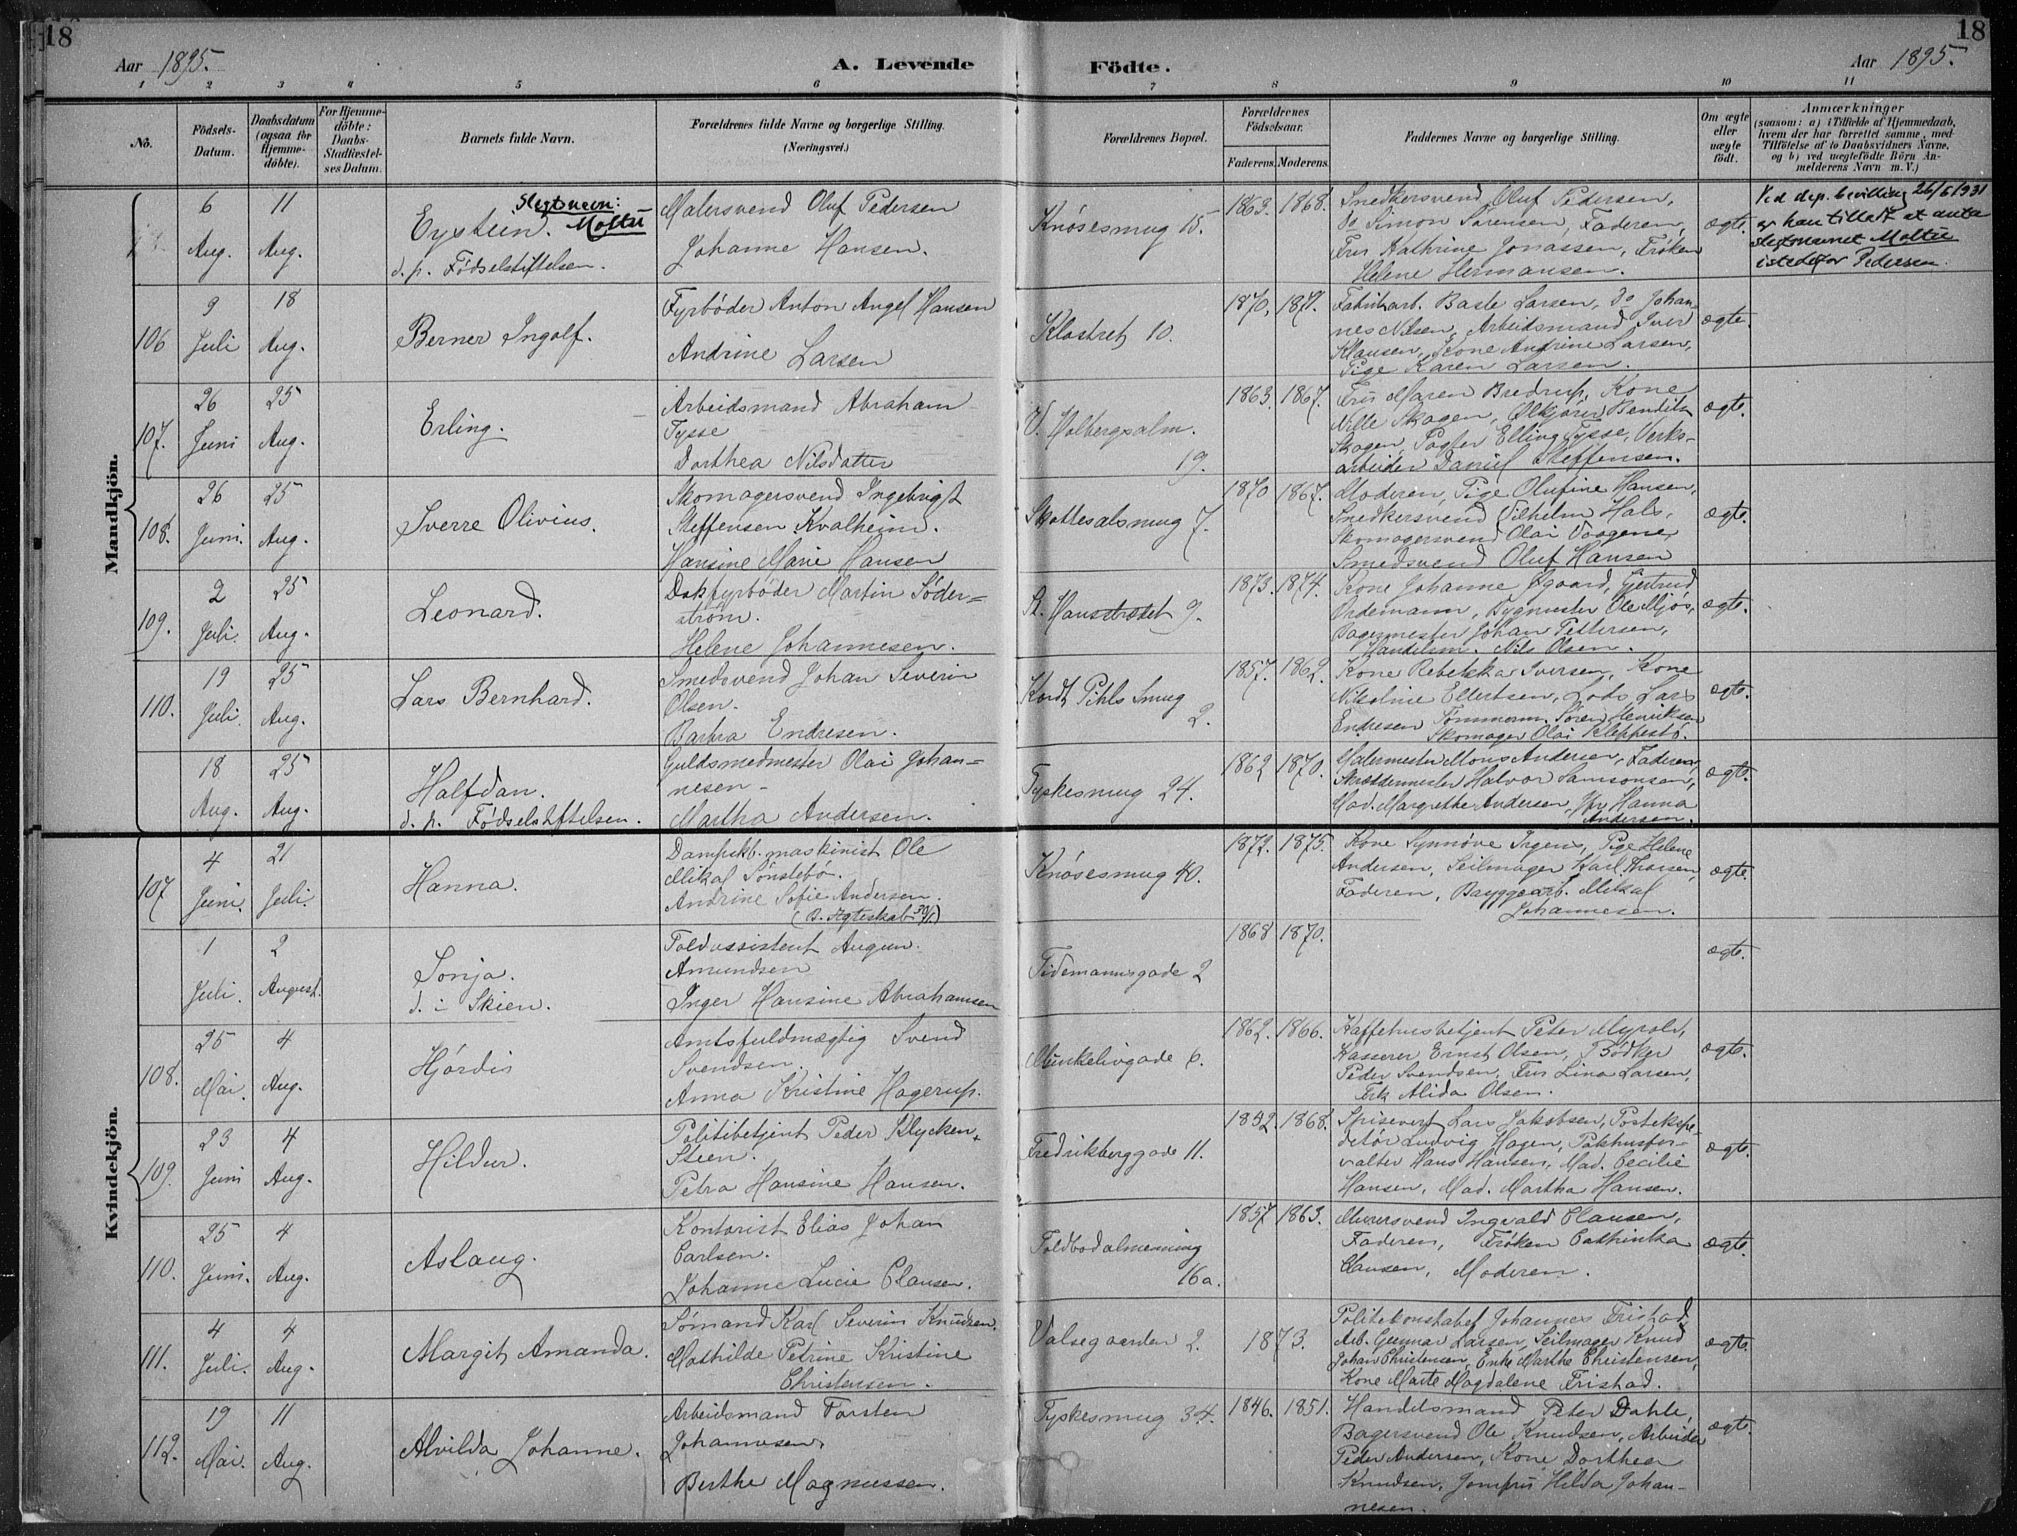 18
18
Aar 1895.
A. Levende
Födte.
Aar 1895.
1 2 3 4 5 6 7 8 9 10 11
No.
Födsels-
Datum.
Daabsdatum
(ogsaa for
Hjemme-
döbte).
For Hjemme-
döbte:
Daabs-
Stadfæstel-
ses Datum.
Barnets fulde Navn.
Forældrenes fulde Navne og borgerlige Stilling.
(Næringsvei.)
Forældrenes Bopæl.
Forældrenes
Födselsaar.
Faderens. Moderens.
Faddernes Navne og borgerlige Stilling.
Om ægte
eller
uægte
födt.
Anmærkninger
(saasom: a) i Tilfælde af Hjemmedaab,
hvem der har forrettet samme, med
Tilföielse af to Daabsvidners Navne,
og b) ved uægtefödte Börn An-
melderens Navn m. V.)
Mandkjön.
6
Aug.
11
Aug.
Slegtsnavn:
Eystein. Moltu
d. p. Fødselstiftelsen.
Malersvend Oluf Pedersen
Johanne Hansen.
Knøsesmug 15.
1863. 1868.
Snedkersvend Oluf Pedersen,
do Simon Sørensen, Faderen,
Fru Kathrine Jonassen, Frøken
Helene Hermansen.
ægte.
Ved dep. bevilling 26/6 1931
er han tilladt at anta
slegtsnavnet Moltu
istedefor Pedersen.
106
9
Juli
18
Aug.
Berner Ingolf.
Fyrbøder Anton Angel Hansen
Andrine Larsen
Klostret 10.
1870. 1871.
Fabrikarb. Baste Larsen, do Johan-
nes Nilsen, Arbeidsmand Iver
Klausen, Kone Andrine Larsen,
Pige Karen Larsen.
ægte.
107.
26
Juni
25
Aug.
Erling.
Arbeidsmand Abraham
Tysse
Dorthea Nilsdatter
V. Holbergsalm.
19.
1863. 1867.
Fru Maren Bredrup, Kone
Nille Skagen, Ølkjører Bendik
Skagen, Pagter Elling Tysse, Verks-
arbeider Daniel Steffensen.
ægte.
108.
26
Juni.
25
Aug.
Sverre Olivius.
Skomagersvend Ingebrigt
Steffensen Kvalheim.
Hansine Marie Hansen
Skottesalsmug 7.
1870 1867.
Moderen, Pige Olufine Hansen,
Snedkersvend Vilhelm Hals,
Skomagersvend Olai Vaagene,
Smedsvend Oluf Hansen
ægte.
109.
2
Juli.
25
Aug.
Leonard.
Dokfyrbøder Martin Söder=
strøm.
Helene Johannesen.
St. Hansstrædet 9.
1873. 1874.
Kone Johanne Øgaard, Gjertrud
Ordemann, Bygmester Ole Mjøs,
Bagermester Johan Pettersen,
Handelsm. Nils Olsen.
ægte.
110.
19
Juli.
25
Aug.
Lars Bernhard.
Smedsvend Johan Severin
Olsen.
Barbra Endresen.
Kordt Pihls Smug
2.
1857. 1862.
Kone Rebekka Iversen, Kone
Nikoline Ellertsen, Lods Lars
Endresen Tømmerm. Søren Henriksen
Skomager Olai Kleppestø.
ægte.
18
Aug.
25
Aug.
Halfdan.
d. p. Fødselstiftelsen.
Guldsmedmester Olai Johan-
nesen-
Martha Andersen.
Tyskesmug 24.
1862 1870.
Malermester Mons Andersen, Faderen,
Skræddermester Halvor Samsonsen,
Mad. Margrethe Andersen, Hanna
Andersen.
ægte.
Kvindekjön.
107
4
Juni.
21
Juli.
Hanna.
Dampskb. maskinist Ole
Mikal Sønstebø.
Andrine Sofie Andersen.
(B. Ægteskab 30/1)
Knøsesmug 40.
1872. 1875.
Kone Synnøve Ingens, Pige Helene
Andersen, Seilmager Karl Thorsen,
Faderen, Bryggearb. Mikal
Johannesen.
ægte.
1
Juli.
2
August.
Sonja.
d. i Skien.
Toldassistent Augun
Amundsen
Inger Hansine Abrahamsen
Tidemannsgade 2
1868 1870.
ægte.
108.
25
Mai.
4
Aug.
Hjørdis
Amtsfuldmægtig Svend
Svendsen.
Anna Kristine Hagerup.
Munkelivgade 6.
1862. 1866.
Kaffehusbetjent Peter Myrold,
Kasserer Ernst Olsen, Bødker
Peder Svendsen, Fru Lina Larsen,
Frk Alida Olsen.
ægte.
109.
23
Juni
4
Aug.
Hildur.
Politibetjent Peder Klycken
Steen.
Petra Hansine Hansen.
Fredrikberggade 11.
1852. 1868.
Spisevert Lars Jakobsen, Postekspe-
ditør Ludvig Hagen, Pakhusfor-
valter Hans Hansen, Mad. Cecilie
Hansen, Mad. Martha Hansen.
ægte.
110.
25
Juni.
4
Aug.
Aslaug.
Kontorist Elias Johan
Carlsen.
Johanne Lucie Clausen.
Toldbodalmenning
16a.
1857 1863.
Murersvend Ingvald Clausen,
Faderen, Frøken Cathinka
Clausen, Moderen.
ægte.
111.
4
Juli.
4
Aug.
Margit Amanda.
Sømand Karl Severin Knudsen.
Mathilde Petrine Kristine
Christensen.
Valsegaarden 2.
1873.
Politikonstabel Johannes Fristad,
Arb. Gunnar Larsen, Seilmager Knud
Johan Christensen, Enke Marthe Christensen,
Kone Marte Magdalene Fristad.
ægte.
112.
19
Mai.
11
Aug.
Alvilda Johanne.
Arbeidsmand Torsten
Johannesen.
Berthe Magnussen.
Tyskesmug 34.
1846. 1851.
Handelsmand Peter Dahle,
Bagersvend Ole Knudsen, Arbeider
Peder Andersen, Kone Dorthea
Knudsen, Jomfru Hilda Johan-
nesen.
ægte.